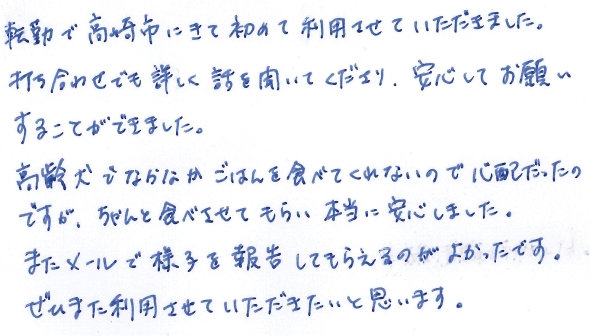 転勤で高崎市にきて初めて利用させていただきました。
打ち合わせでも詳しく話を聞いてくださり、安心してお願い
することができました。
高齢犬でなかなかごはんを食べてくれないので心配だったの
ですが、ちゃんと食べさせてもらい本当に安心しました。
またメールで様子を報告してもらえるのがよかったです。
ぜひまた利用させていただきたいと思います。